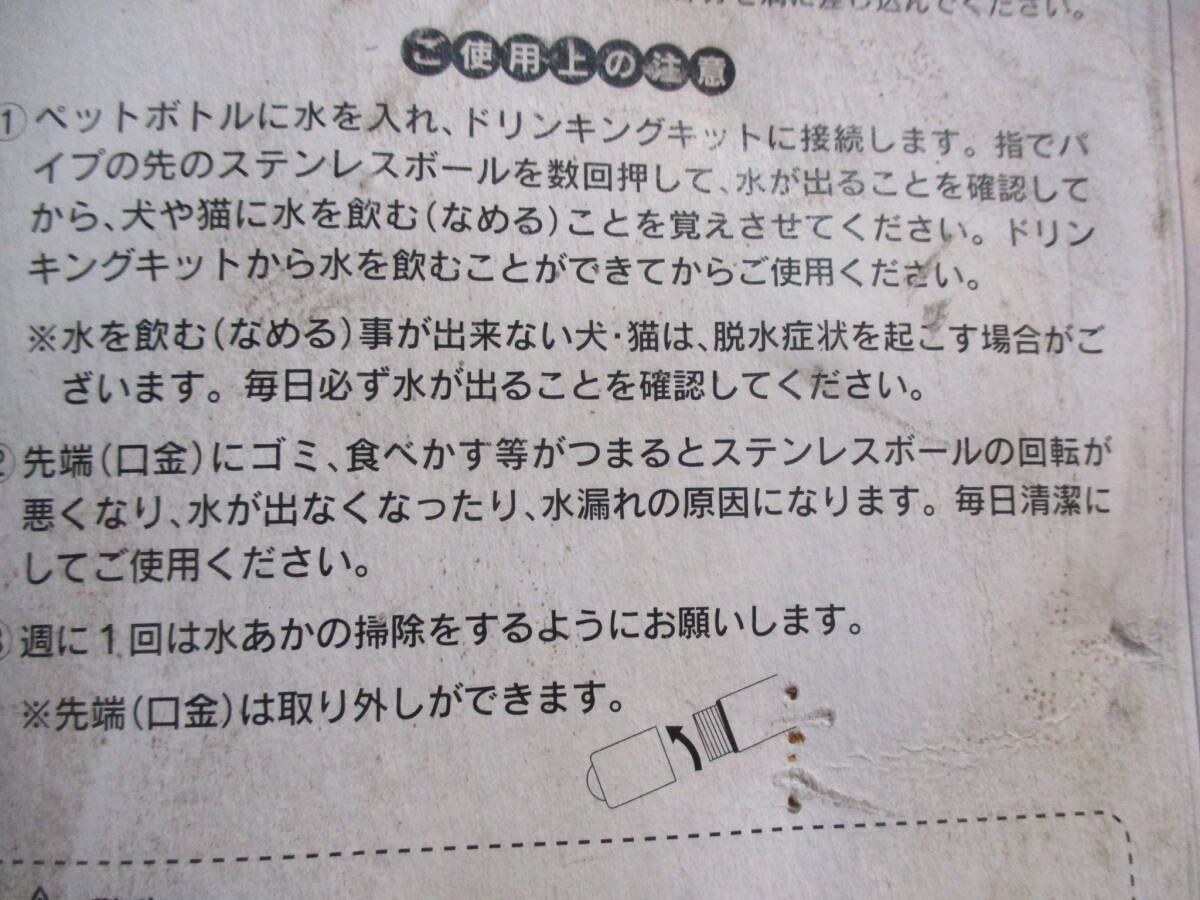 に差し込んでください。
ご使用上の注意
① ペットボトルに水を入れ、ドリンキングキットに接続します。指でパ
イプの先のステンレスボールを数回押して、水が出ることを確認して
から、犬や猫に水を飲む(なめる)ことを覚えさせてください。ドリン
キングキットから水を飲むことができてからご使用ください。
※水を飲む(なめる)事が出来ない犬・猫は、脱水症状を起こす場合がご
ざいます。毎日必ず水が出ることを確認してください。
② 先端(口金)にゴミ、食べかす等がつまるとステンレスボールの回転が
悪くなり、水が出なくなったり、水漏れの原因になります。毎日清潔に
してご使用ください。
③ 週に1回は水あかの掃除をするようにお願いします。
※先端(口金)は取り外しができます。